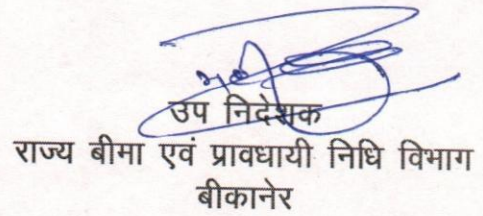 उप निदेशक
राज्य बीमा एवं प्रावधायी निधि विभाग
बीकानेर